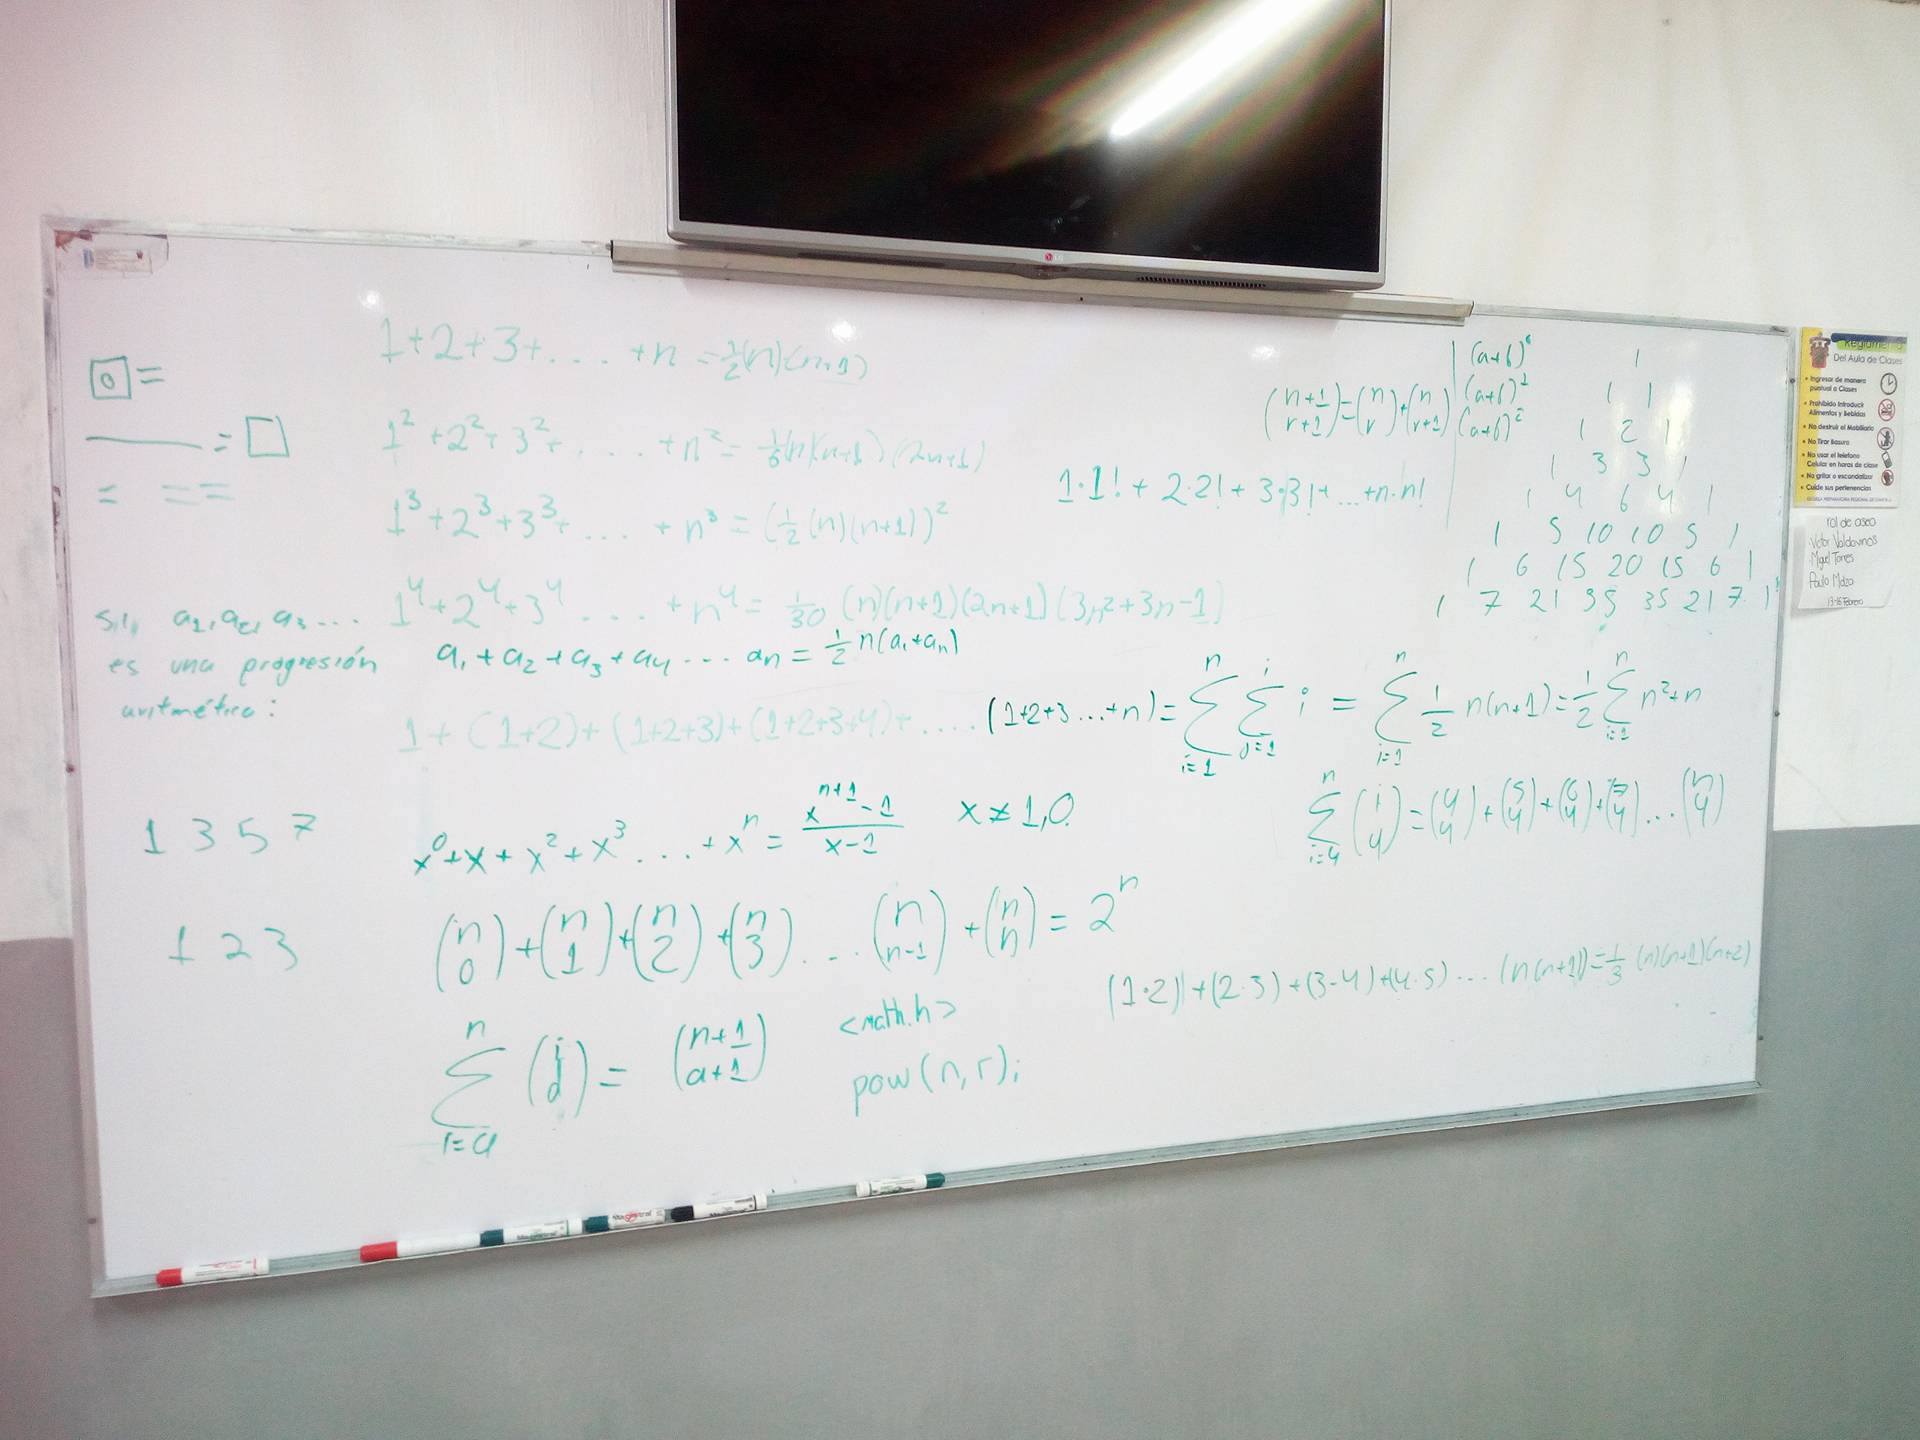 1+2+3+....+n = ½(n)(n+1)
□0 =
1²+2²+3²+....+n² = ⅙(n)(n+1)(2n+1)
= □
= ==
1³+2³+3³+....+n³ = (½(n)(n+1))²
1⁴+2⁴+3⁴....+n⁴ = 1/30 (n)(n+1)(2n+1)(3n²+3n-1)
Si, a₁,a₂,a₃...
es una progresión
aritmética:
a₁+a₂+a₃+a₄...an = ½n(a₁+an)
1+(1+2)+(1+2+3)+(1+2+3+4)+.....(1+2+3...+n) = Σ_{i=1}^{n} Σ_{j=1}^{i} i = Σ_{i=1}^{n} 1/2 n(n+1) = 1/2 Σ_{i=1}^{n} n²+n
1 3 5 7
x⁰+x+x²+x³....+xⁿ = (x^{n+1}-1)/(x-1) x≠1,0
1 2 3
(n 0)+(n 1)+(n 2)+(n 3)....(n n-1)+(n n) = 2ⁿ
Σ_{i=a}^{n} (i a) = (n+1 a+1)
<math.h>
pow(n,r);
(n+1 r+1)=(n r)+(n r+1)
1·1!+2·2!+3·3!+...+n·n!
(a+b)⁰ 1
(a+b)¹ 1 1
(a+b)² 1 2 1
1 3 3 1
1 4 6 4 1
1 5 10 10 5 1
1 6 15 20 15 6 1
1 7 21 35 35 21 7 1
Σ_{i=4}^{n} (i 4) = (4 4)+(5 4)+(6 4)+(7 4)...(n 4)
(1·2)+(2·3)+(3·4)+(4·5)...(n(n+1)) = ⅓(n)(n+1)(n+2)
LG
Reglamento
Del Aula de Clases
• Ingresar de manera
puntual a Clases
• Prohibido Introducir
Alimentos y Bebidas
• No destruir el Mobiliario
• No Tirar Basura
• No usar el telefono
Celular en horas de clase
• No gritar o escandalizar
• Cuide sus pertenencias
rol de aseo
Victor Valdovinos
Miguel Torres
Paulo Maza
13-16 Febrero